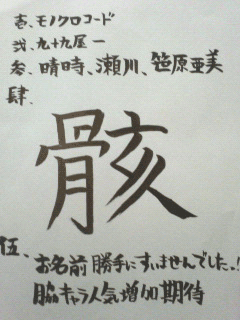 壱、モノクロコード
弐、九十九屋一
参、晴時、瀬川、笹原亜美
肆、
骸
伍、お名前勝手にすいませんでした、!!
脇キャラ人気増加期待